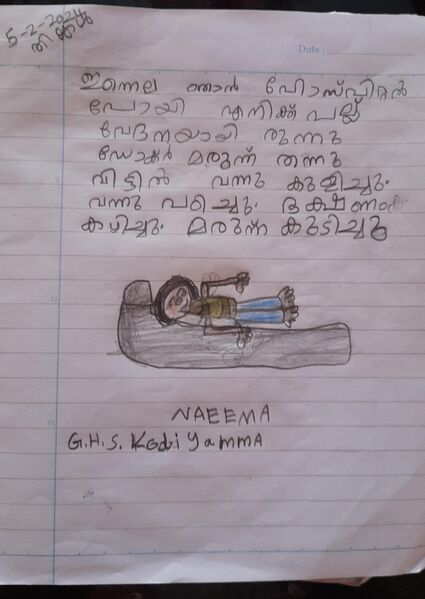 5-2-2024
തിങ്കൾ
Date :
ഇന്നെല ഞാൻ ഹോസ്പിറ്റൽ
പോയി എനിക്ക് പല്ല്
വേദനയായി രുന്നു
ഡോക്ടർ മരുന്ന് തന്നു
വീട്ടിൽ വന്നു കുളിച്ചു.
വന്നു പഠിച്ചു. ഭക്ഷണം
കഴിച്ചു. മരുന്ന് കുടിച്ചു
NAEEMA
G.H.S. Kodiyamma